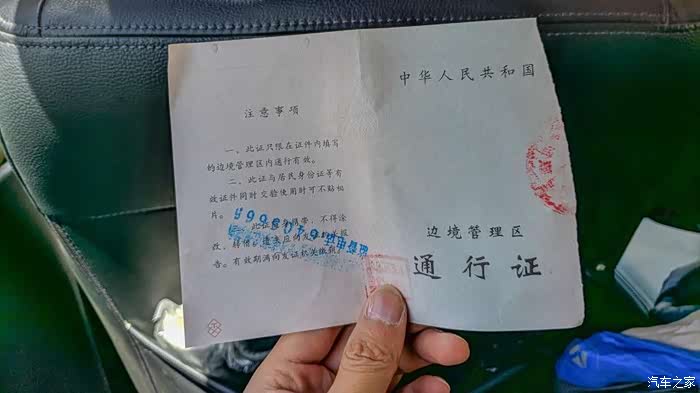 注意事项
一、此证只限在证件内填写
的边境管理区内通行有效。
二、此证与居民身份证等有
效证件同时交验使用时可不贴相
片。
不得涂
改、转借。
告。有效期满向发证机关缴
中华人民共和国
边境管理区
通行证
汽车之家